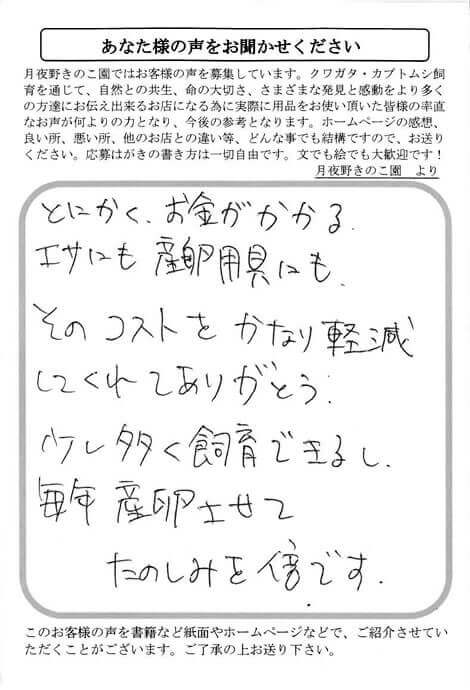 あなた様の声をお聞かせください
月夜野きのこ園ではお客様の声を募集しています。クワガタ・カブトムシ飼
育を通じて、自然との共生、命の大切さ、さまざまな発見と感動をより多く
の方達にお伝え出来るお店になる為に実際に用品をお使い頂いた皆様の率直
なお声が何よりの力となり、今後の参考となります。ホームページの感想、
良い所、悪い所、他のお店との違い等、どんな事でも結構ですので、お送り
ください。応募はがきの書き方は一切自由です。文でも絵でも大歓迎です！
月夜野きのこ園　より
とにかく、お金がかかる。
エサにも産卵用具にも。
そのコストをかなり軽減
してくれてありがとう。
多く飼育できるし、
毎年産卵させて
たのしみも倍です。
このお客様の声を書籍など紙面やホームページなどで、ご紹介させてい
ただくことがございます。ご了承の上お送り下さい。